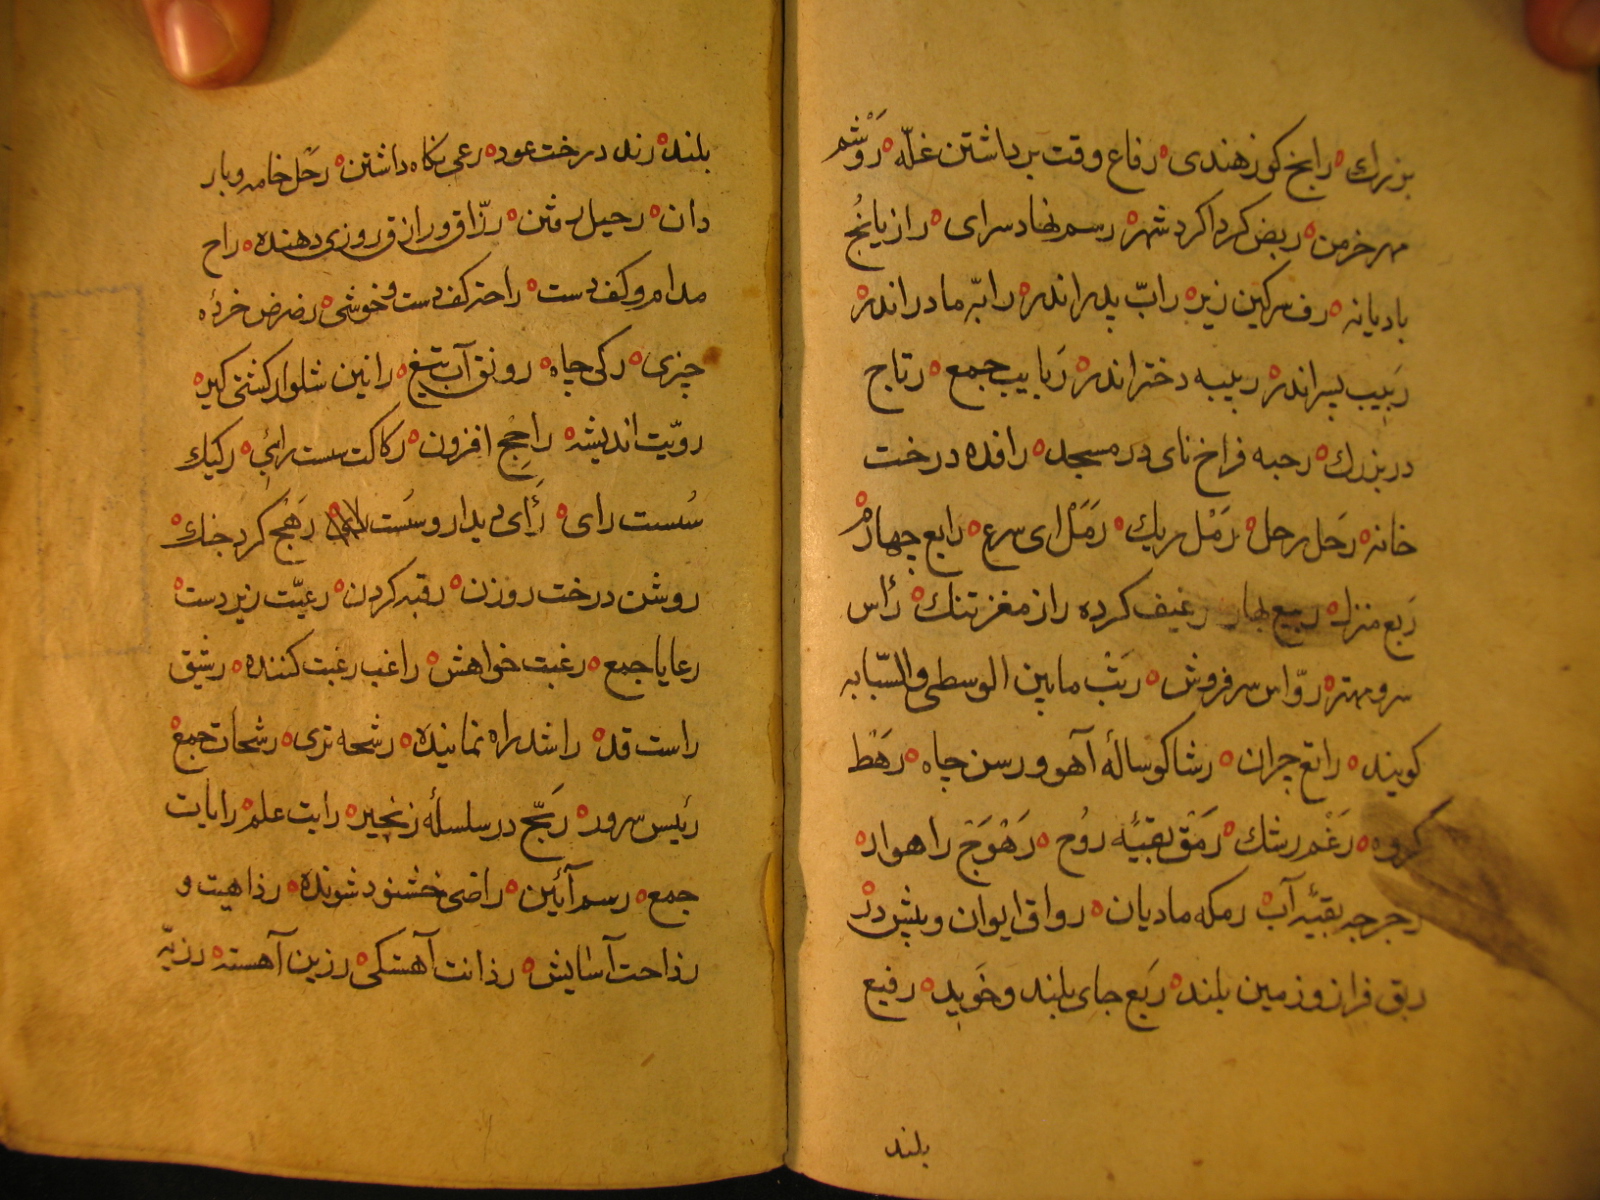 بزرك رانج كوز هندى رفاع وقت برداشتن غلّه رَوْشم
مهر خرمن ربض كرداكرد شهر رسم نهاد سراى رازيانج
باديانه رف سركين زير رابّ پدر اندر رابّه مادر اندر
رَبيب پسر اندر ربيبه دختر اندر رَبايب جمع رتاج
در بزرك رحبه فراخ ناى در مسجد رافده درخت
خانه رَحَل رحل رَمْل ريك رَمَل اى سرع رابع چهارم
رَبع منزل ربيع بهار رغيف كرده راز مغز تنك رأس
سر و مهتر روّاس سر فروش رَتَب مابين الوسطى والسّبابه
كويند راتع چران رشا كوسالهٔ آهو و رسن چاه رَهْط
كروه رَغْم رشك رَمَق بقيّه رُوح رَهْوَج راهوار
رجرجه بقيّه آب رمكه ماديان رواق ايوان و پيش در
ربق فراز و زمين بلند رَبع جاى بلند و خَويد رفيع
بلند
بلند رند درخت عود رعى نكاه داشتن رَحَل خامه و بار
دان رحيل رفتن رزّاق و رازق روزى دهنده راح
مدام و كف دست راحتر كف دست و خوشى رضرض خردهٔ
چيزى ركى چاه رونق آب تيغ رانين شلوار كشتى كير
رويّت انديشه راجح افزون ركاكت سست رائي ركيك
سُست راى رَأى ديدار و سُست رَهَج كرد خنك
روشن درخت روزن رقبه كردن رعيّت زير دست
رعايا جمع رغبت خواهش راغب رغبت كننده رشيق
راست قد راشد راه نماينده رشحه ترى رشحات جمع
رئيس سرور رَبّج در سلسلهٔ زنجير رايت علم رايات
جمع رسم آئين راضى خشنود شونده رذاهيت و
رذاحت آسايش رذانت آهستكى رزين آهسته رزيّه